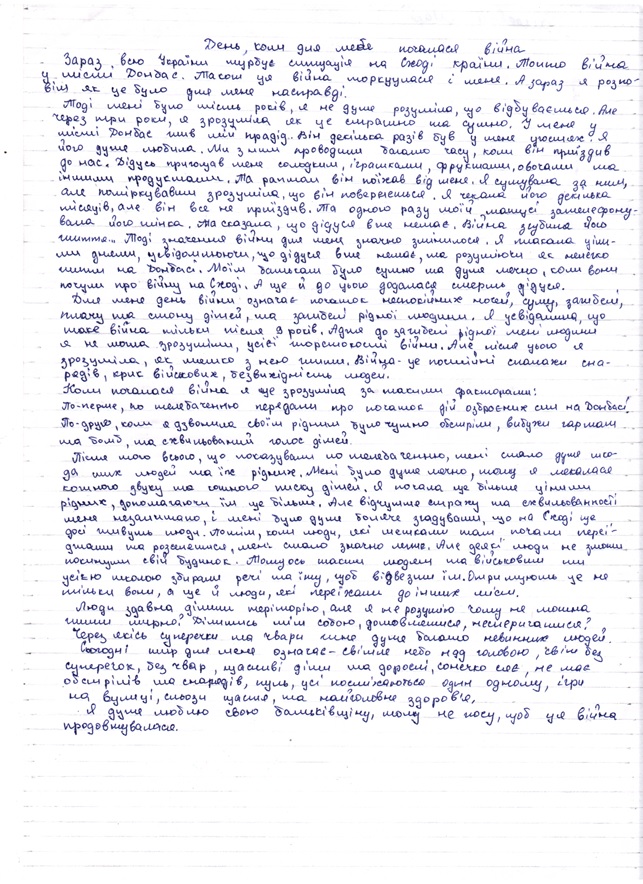 День, коли для мене почалася війна
Зараз, всю Україну турбує ситуація на Сході країни. Тобто війна
у місті Донбас. Також ця війна торкнулася і мене. А зараз я розпо-
вім як це було для мене насправді.
Тоді мені було шість років, я не дуже розуміла, що відбувається. Але
через три роки, я зрозуміла як це страшно та сумно. У мене у
місті Донбас жив мій прадід. Він декілька разів був у мене у гостях. Я
його дуже любила. Ми з ним проводили багато часу, коли він приїздив
до нас. Дідусь пригощав мене солодким, іграшками, фруктами, овочами та
іншими продуктами. Та раптом він поїхав від мене. Я сумувала за ним,
але поміркувавши зрозуміла, що він повернеться. Я чекала його декілька
місяців, але він все не приїздив. Та одного разу моїй матусі зателефону-
вала його жінка. Та сказала, що дідуся вже немає. Війна згубила його
життя... Тоді значення війни для мене значно змінилося. Я плакала ціли-
ми днями, усвідомлюючи, що дідуся вже немає, та розуміючи як нелегко
жити на Донбасі. Моїм батькам було сумно та дуже лячно, коли вони
почули про війну на Сході. А ще й до цього додалася смерть дідуся.
Для мене день війни означає початок неспокійних ночей, суму, загибелі,
плачу та стогну дітей, та загибелі рідної людини. Я усвідомила, що
таке війна тільки після 9 років. Адже до загибелі рідної мені людини
я не могла зрозуміти, усієї жорстокості війни. Але після цього я
зрозуміла, як тяжко з нею жити. Війна - це постійні спалахи сна-
рядів, крик військових, безвихідність людей.
Коли почалася війна я ще зрозуміла за такими факторами:
По-перше, по телебаченню передали про початок дій озброєних сил на Донбасі.
По-друге, коли я дзвонила своїм рідним було чутно обстріли, вибухи гармат
та бомб, та схвильований голос дітей.
Після того всього, що показували по телебаченню, мені стало дуже шко-
да тих людей та їх рідних. Мені було дуже лячно, тому я лякалася
кожного звуку та кожного писку дітей. Я почала ще більше цінити
рідних, допомагаючи їм ще більше. Але відчуття страху та схвильованості
мене не залишало, і мені було дуже боляче згадувати, що на Сході ще
досі живуть люди. Потім, коли люди, які мешкали там почали переї-
джати та розселятися, мені стало значно легше. Але деякі люди не змогли
покинути свій будинок. Тому ось таким людям та військовим ми
усією школою збирали речі та їжу, щоб відвезти їм. Отримують це не
тільки вони, а ще й люди, які переїхали до інших міст.
Люди здавна ділили територію, але я не розумію чому не можна
жити мирно? Ділитись між собою, домовлятися, не сперечатися?
Через якісь суперечки та чвари гине дуже багато невинних людей.
Сьогодні мир для мене означає - світле небо над головою, світ без
суперечок, без чвар, щасливі діти та дорослі, сонечко сяє, не має
обстрілів та снарядів, куль, усі посміхаються один одному, ігри
на вулиці, сльози щастя, та найголовне здоров'я,
Я дуже люблю свою батьківщину, тому не хочу, щоб ця війна
продовжувалася.